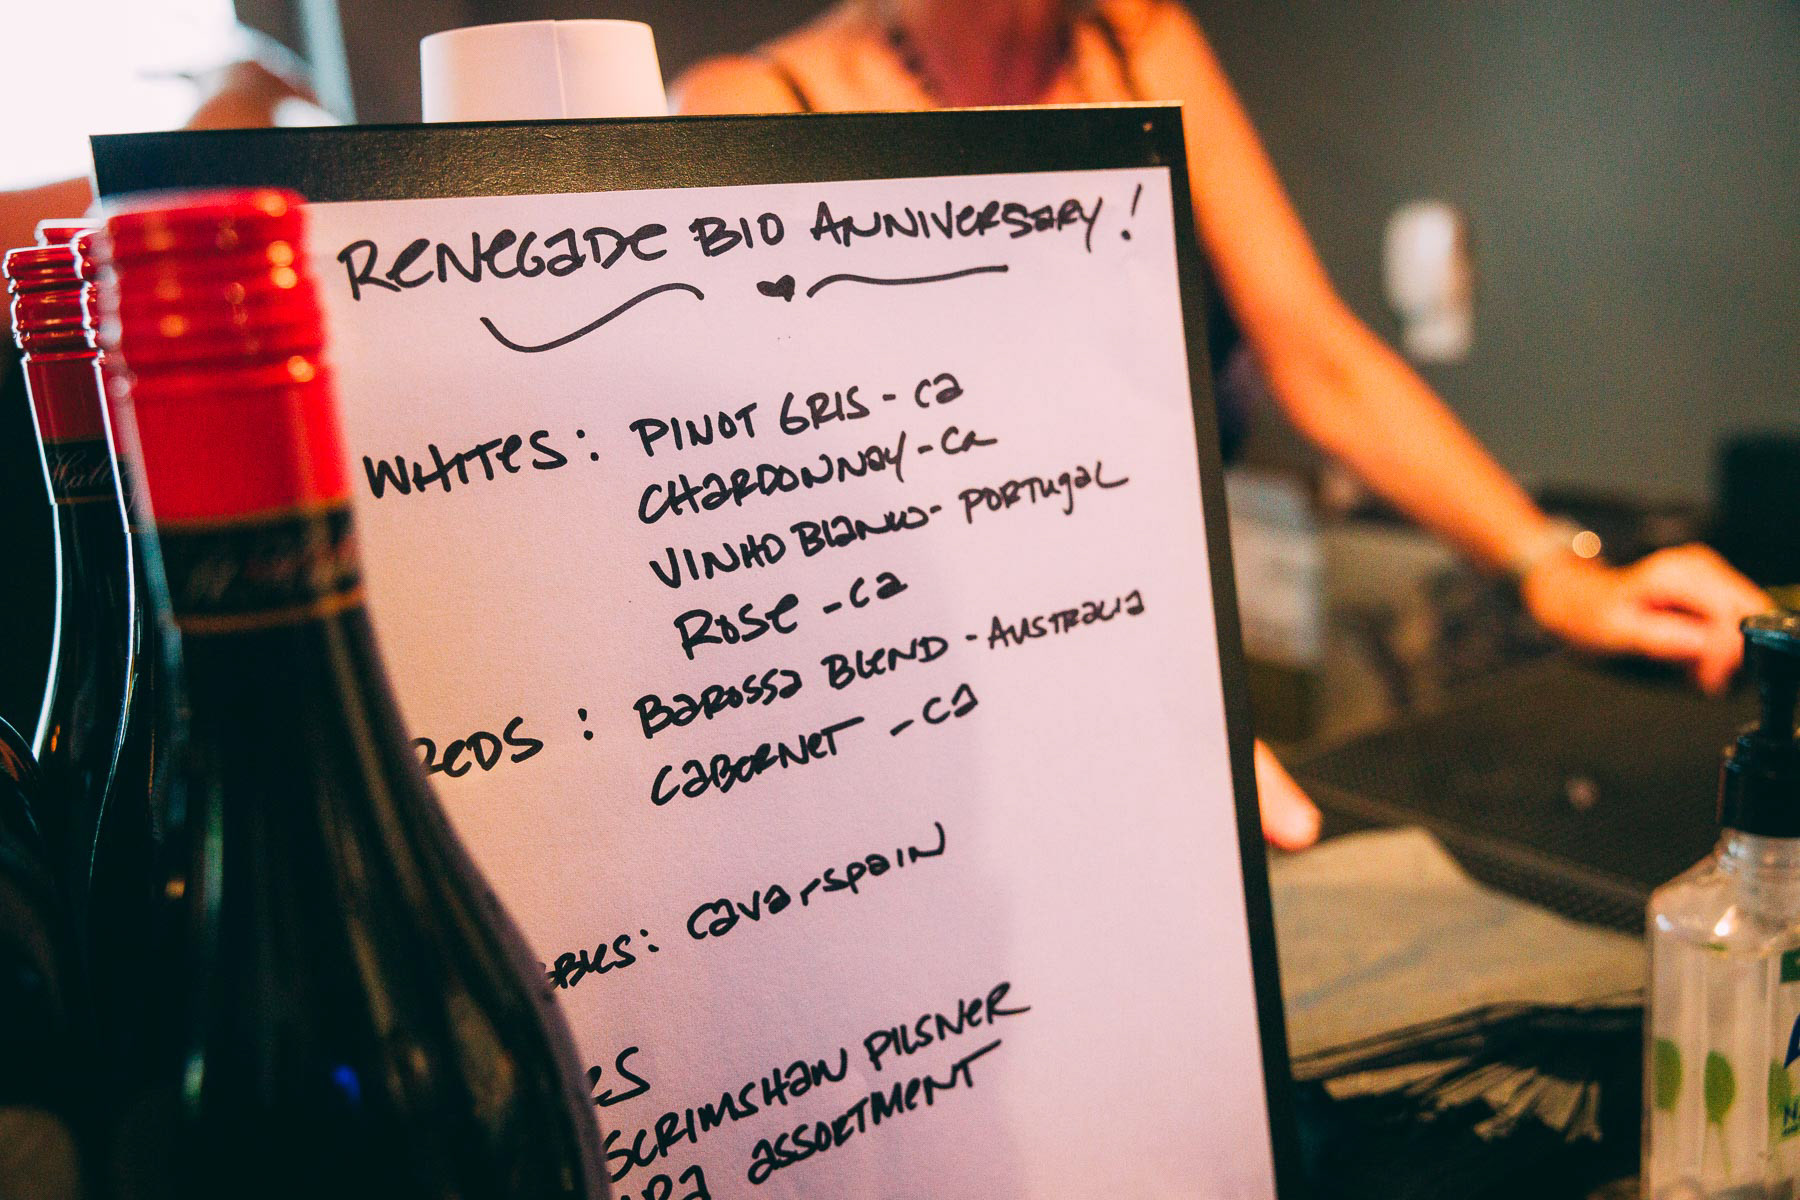 RENEGADE BIO ANNIVERSARY!
WHITES: PINOT GRIS - CA
CHARDONNAY - CA
VINHO BLANCO - PORTUGAL
ROSE - CA
REDS: BAROSSA BLEND - AUSTRALIA
CABERNET - CA
CAVA - SPAIN
SCRIMSHAW PILSNER
ASSORTMENT